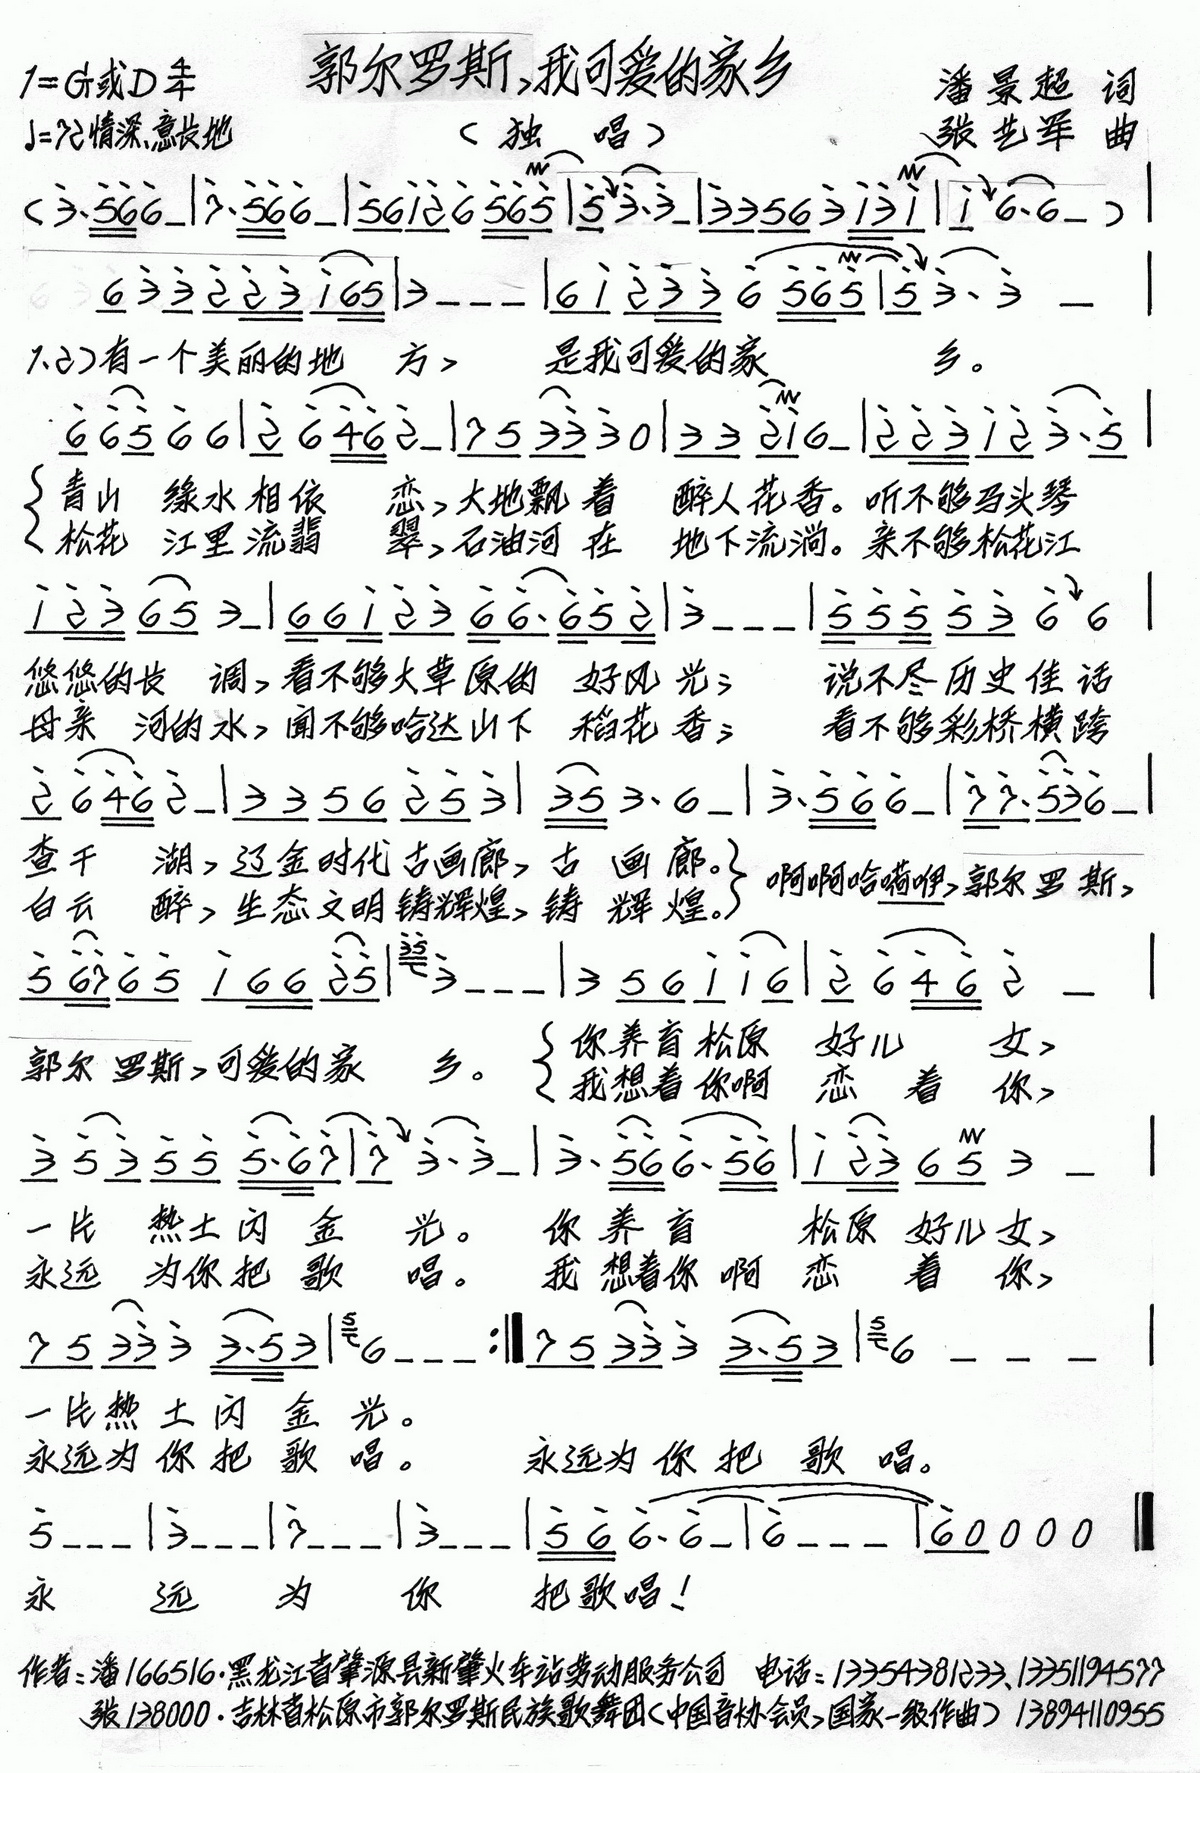 郭尔罗斯,我可爱的家乡
1=G或D 4/4
潘景超 词
♩=72 情深、意长地
(独 唱)
张艺军 曲
(3·566-|7·566-|56126565|53·3-|33563131|16·6-)|
633223165|3---|612336565|53·3-|
1.2)有一个美丽的地 方, 是我可爱的家 乡。
66566|26462-|753330|33216-|2231233·5|
青山 缘水相依 恋,大地飘着 醉人花香。听不够马头琴
松花 江里流翡 翠,石油河在 地下流淌。亲不够松花江
123653-|6612366·652|3---|5555366|
悠悠的长 调,看不够大草原的 好风光; 说不尽历史佳话
母亲 河的水,闻不够哈达山下 稻花香; 看不够彩桥横跨
26462-|3356253|353·6-|3·566-|77·536-|
查干 湖,辽金时代古画廊,古 画廊。 啊啊哈嗬咿,郭尔罗斯,
白云 醉,生态文明铸辉煌,铸 辉煌。
5676516625|353---|356116|26462-|
郭尔罗斯,可爱的家 乡。 你养育松原 好儿 女,
我想着你啊 恋 着 你,
353555·67|73·3-|3·566·56|123653-|
一片 热土闪金 光。 你养育 松原好儿女,
永远 为你把歌 唱。 我想着你啊 恋 着 你,
753333·53|56---:||753333·53|56---|
一片热土闪金光。
永远为你把歌唱。 永远为你把歌唱。
5---|3---|7---|3---|566·6-|6---|600000||
永 远 为 你 把歌唱!
作者:潘166516·黑龙江省肇源县新肇火车站劳动服务公司 电话:13354381233、13351194577
张138000·吉林省松原市郭尔罗斯民族歌舞团(中国音协会员,国家一级作曲) 13894110955